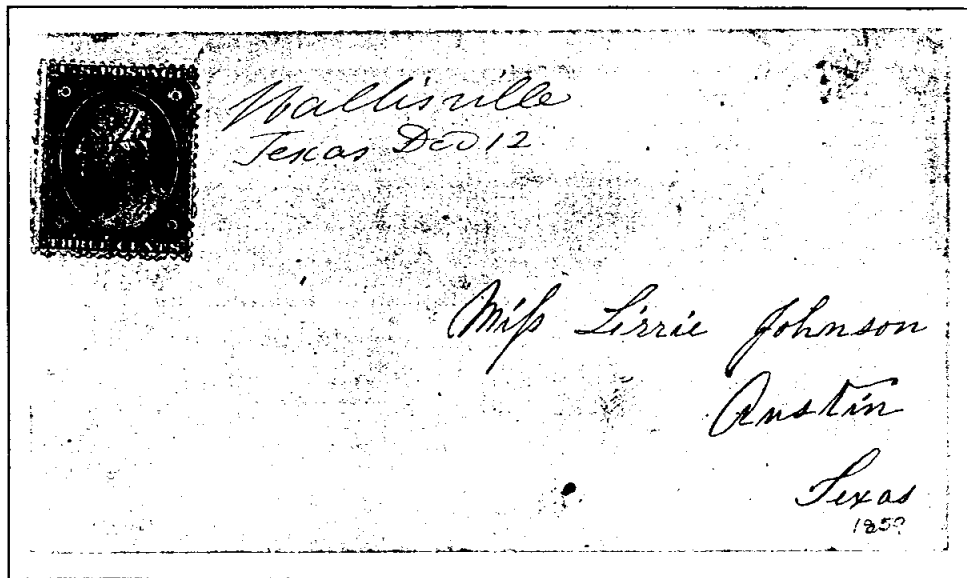 U.S. POSTAGE
THREE CENTS
Wallisville
Texas Dec 12
Miſs Lizzie Johnson
Austin
Texas
1859